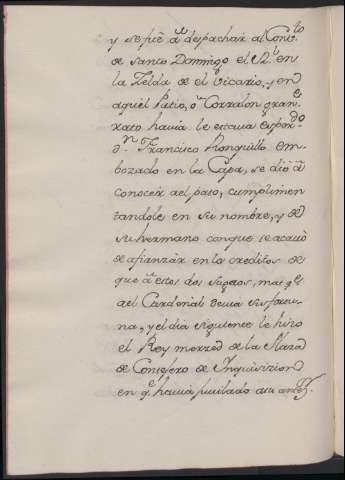 y se fue â despachar al Conv.to
de Santo Domingo el S.r en
la Zelda de el Vicario, y en
aquel Patio, o Corralon gran
rato havia le estava esperdo
Dn. Francisco Ronquillo em
bozado en la Capa, se dió â
conocer a el paso, cumplimen
tandole en su nombre, y de
su hermano conque se acavó
de afianzàr en los creditos de
que â estos dos sugetos, mas qe.
a el Cardenal devia su fortu
na, y el dia siguiente le hizo
el Rey merzed de la Plaza
de Consejero de Inquisizion
en qe. havia jubilado a su antez.r